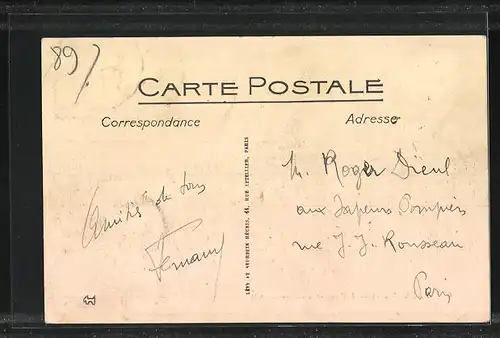 89
CARTE POSTALE
Correspondance
Adresse
Amitiés de tous
Fernand
LÉVY ET NEURDEIN RÉUNIS, 44, RUE LETELLIER, PARIS
M. Roger Dieul
aux Sapeurs Pompiers
rue J. J. Rousseau
Paris